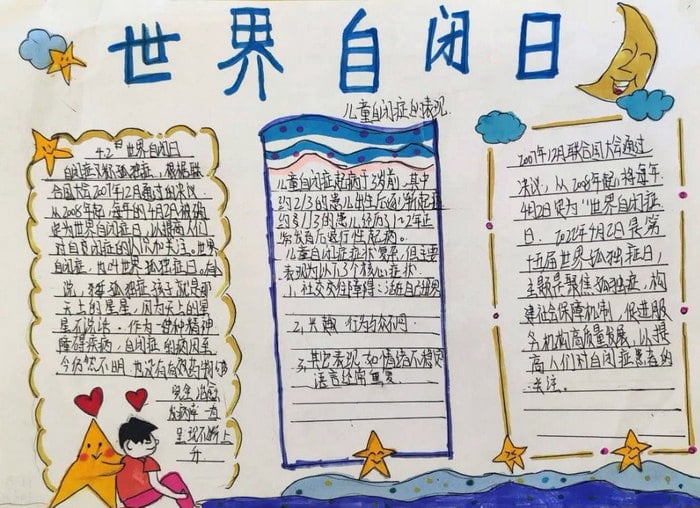 世界自闭日
4.2日世界自闭日
自闭症又称孤独症，根据联
合国大会2007年12月通过的决议，
从2008年起，每年的4月2日被确
定为世界自闭症日，以提高人们
对自闭症的认识和关注。世界
自闭症，也叫世界孤独症日。有人
说，患孤独症孩子就是那
天上的星星，因为天上的星
星不说话。作为一种精神
障碍疾病，自闭症的病因至
今仍然不明，也没有有效药物
完全治愈
发病率一直
呈现不断上
升
儿童自闭症的表现
儿童自闭症起病于3岁前，其中
约2/3的患儿出生后逐渐起病
约1/3的患儿经历了1~2年正
常发育后退行性起病。
儿童自闭症症状复杂，但主要
表现为以下3个核心症状
1. 社交交往障碍：活在自己世界
2. 兴趣、行为与众不同
3. 其它表现，如情绪不稳定
语言经常重复
2007年12月联合国大会通过
决议，从2008年起，将每年
4月2日定为“世界自闭症
日。2022年4月2日是第
十五届世界孤独症日，
主题是聚焦孤独症，构
建社会保障机制，促进服
务机构高质量发展，以提
高人们对自闭症患者的
关注。